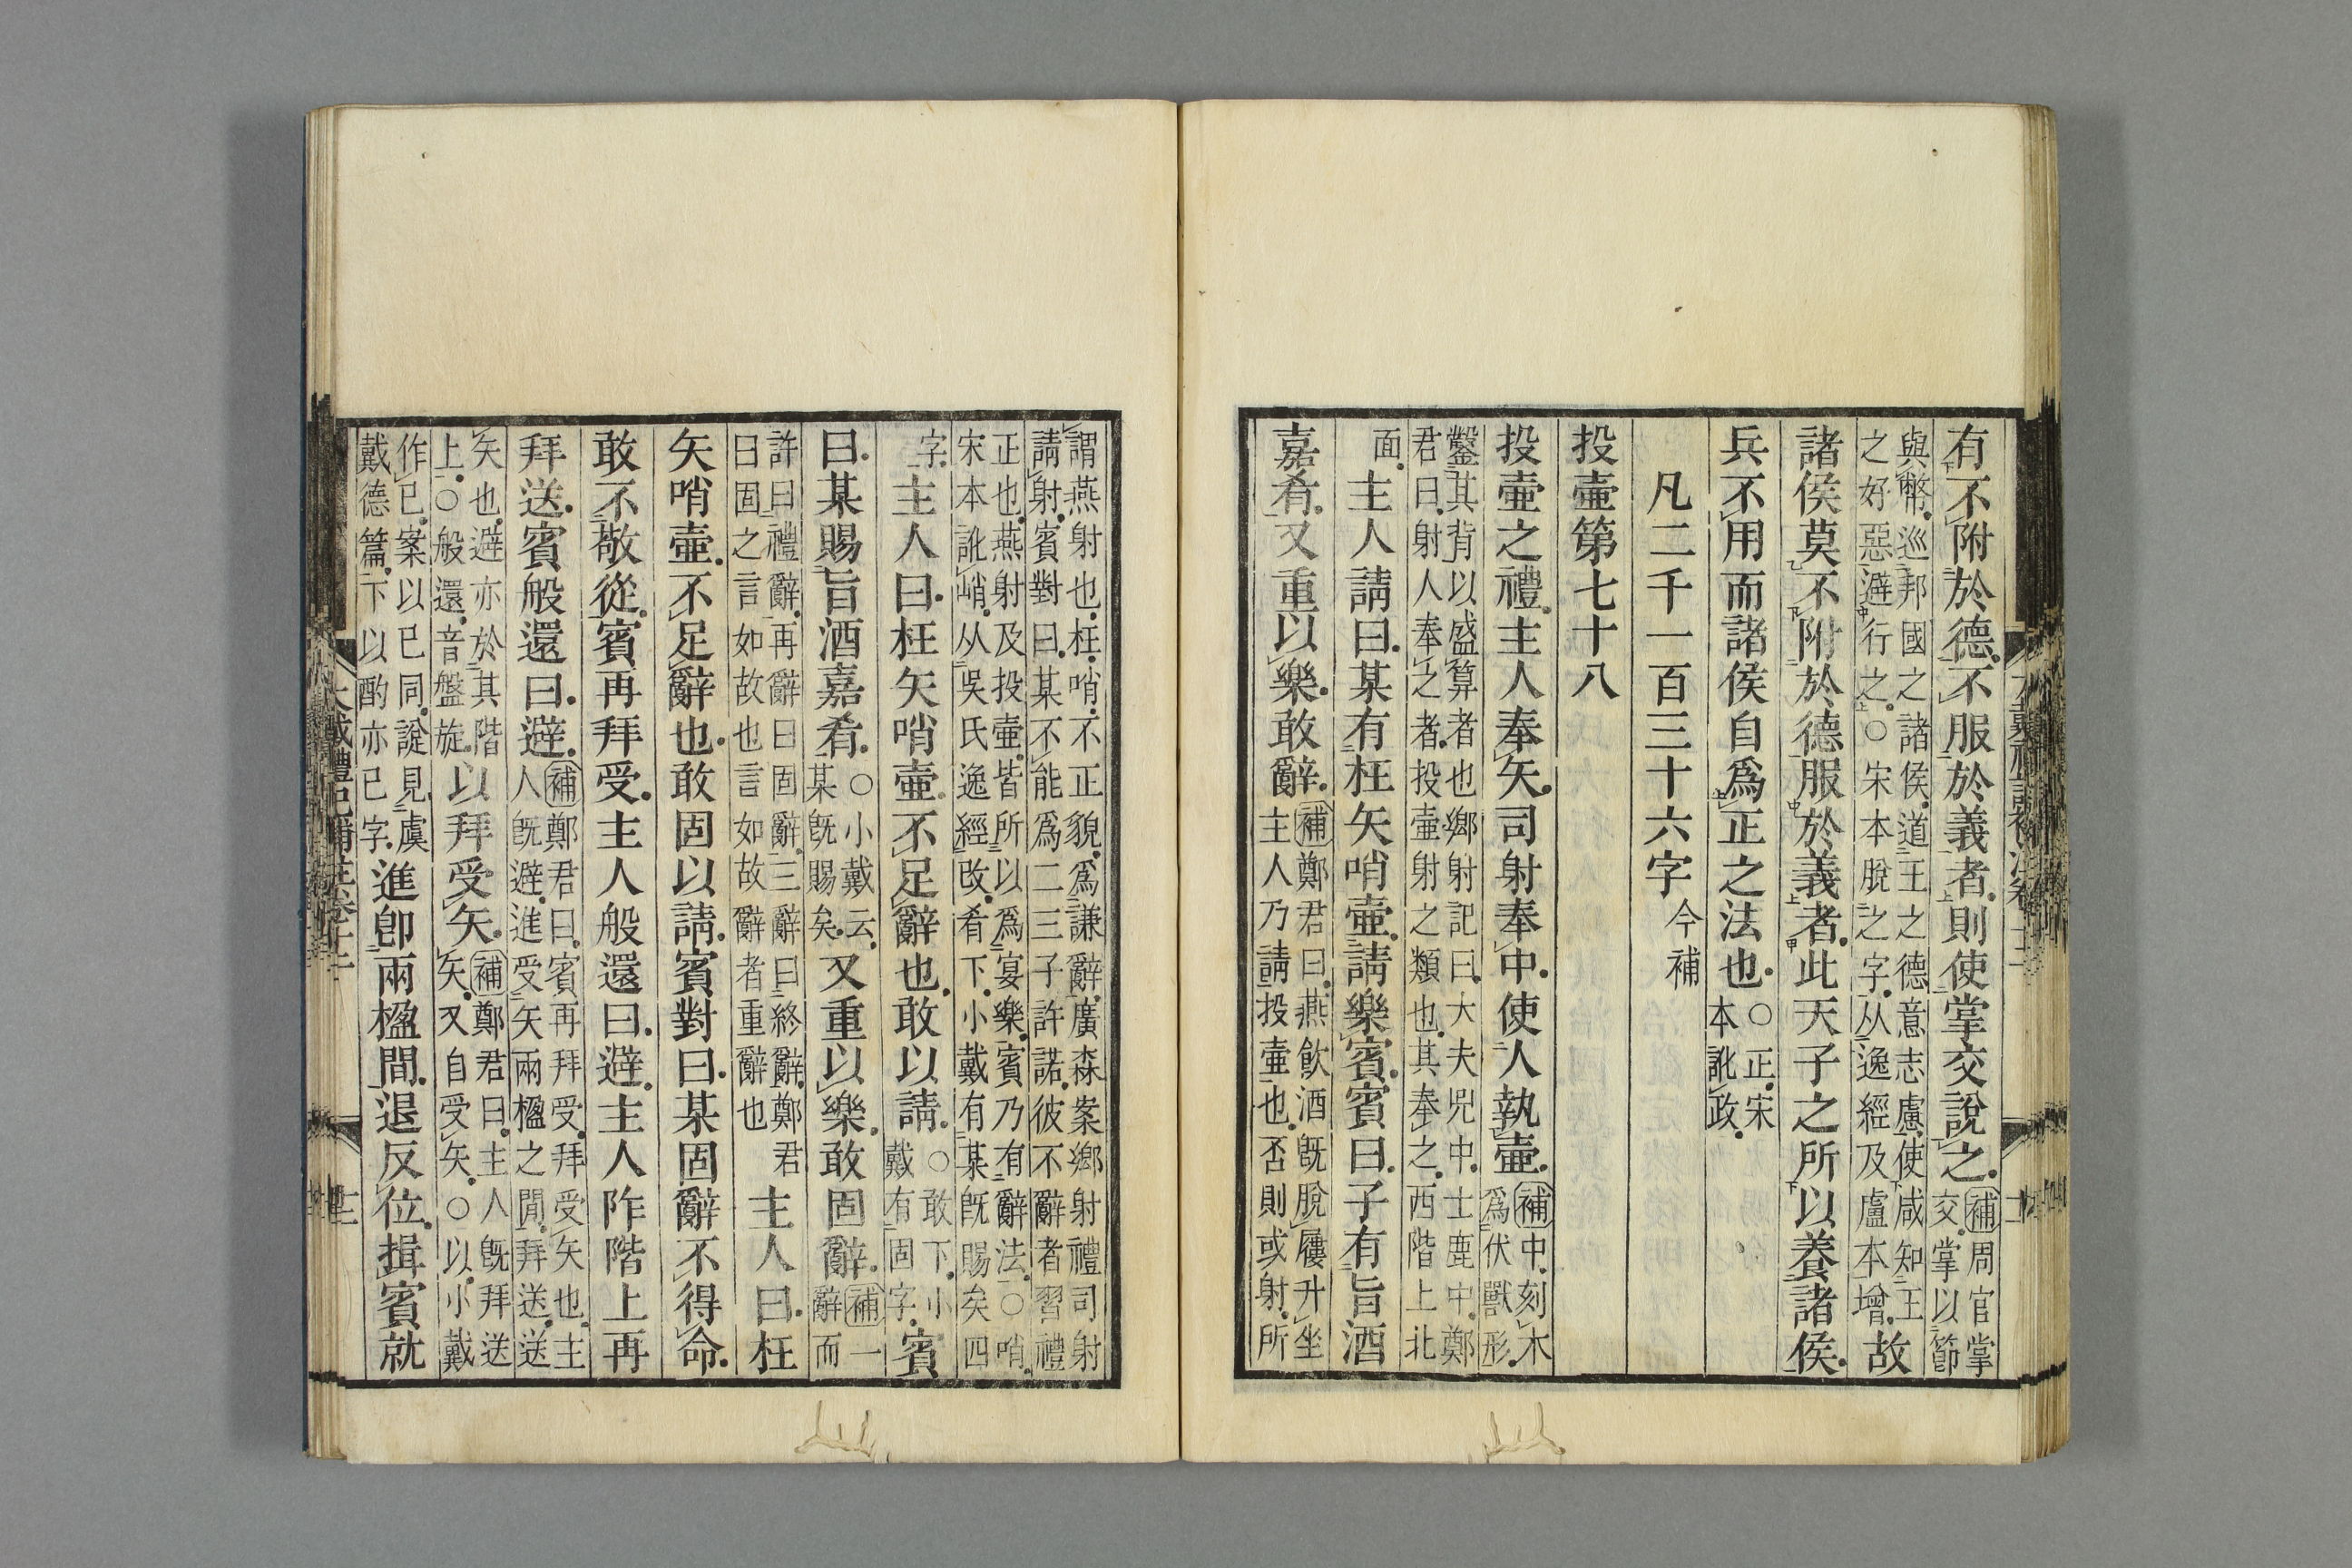 有不附於德不服於義者則使掌交說之補周官掌交掌以節
與幣巡邦國之諸侯道王之德意志慮使咸知王之好惡避行之○宋本脫之字从逸經及盧本增故
諸侯莫不附於德服於義者此天子之所以養諸侯
兵不用而諸侯自爲正之法也○正宋本訛政
凡二千一百三十六字今補
投壺第七十八
投壺之禮主人奉矢司射奉中使人執壺補中刻木爲伏獸形
鑿其背以盛算者也鄉射記曰大夫兕中士鹿中鄭君曰射人奉之者投壺射之類也其奉之西階上北
面主人請曰某有枉矢哨壺請樂賓賓曰子有旨酒
嘉肴又重以樂敢辭補鄭君曰燕飲酒旣脫屨升坐主人乃請投壺也否則或射所
謂燕射也枉哨不正貌爲謙辭廣森案鄉射禮司射請射賓對曰某不能爲二三子許諾彼不辭者習禮
正也燕射及投壺皆所以爲宴樂賓乃有辭法○哨宋本訛峭从吳氏逸經改肴下小戴有某旣賜矣四
字主人曰枉矢哨壺不足辭也敢以請○敢下小戴有固字賓
曰某賜旨酒嘉肴○小戴云某旣賜矣又重以樂敢固辭補一辭而
許曰禮辭再辭曰固辭三辭曰終辭鄭君曰固之言如故也言如故辭者重辭也主人曰枉
矢哨壺不足辭也敢固以請賓對曰某固辭不得命
敢不敬從賓再拜受主人般還曰避主人阼階上再
拜送賓般還曰避補鄭君曰賓再拜受拜受矢也主人旣避進受矢兩楹之閒拜送送
矢也避亦於其階上○般還音盤旋以拜受矢補鄭君曰主人旣拜送矢又自受矢○以小戴
作已案以已同說見虞戴德篇下以酌亦已字進卽兩楹間退反位揖賓就